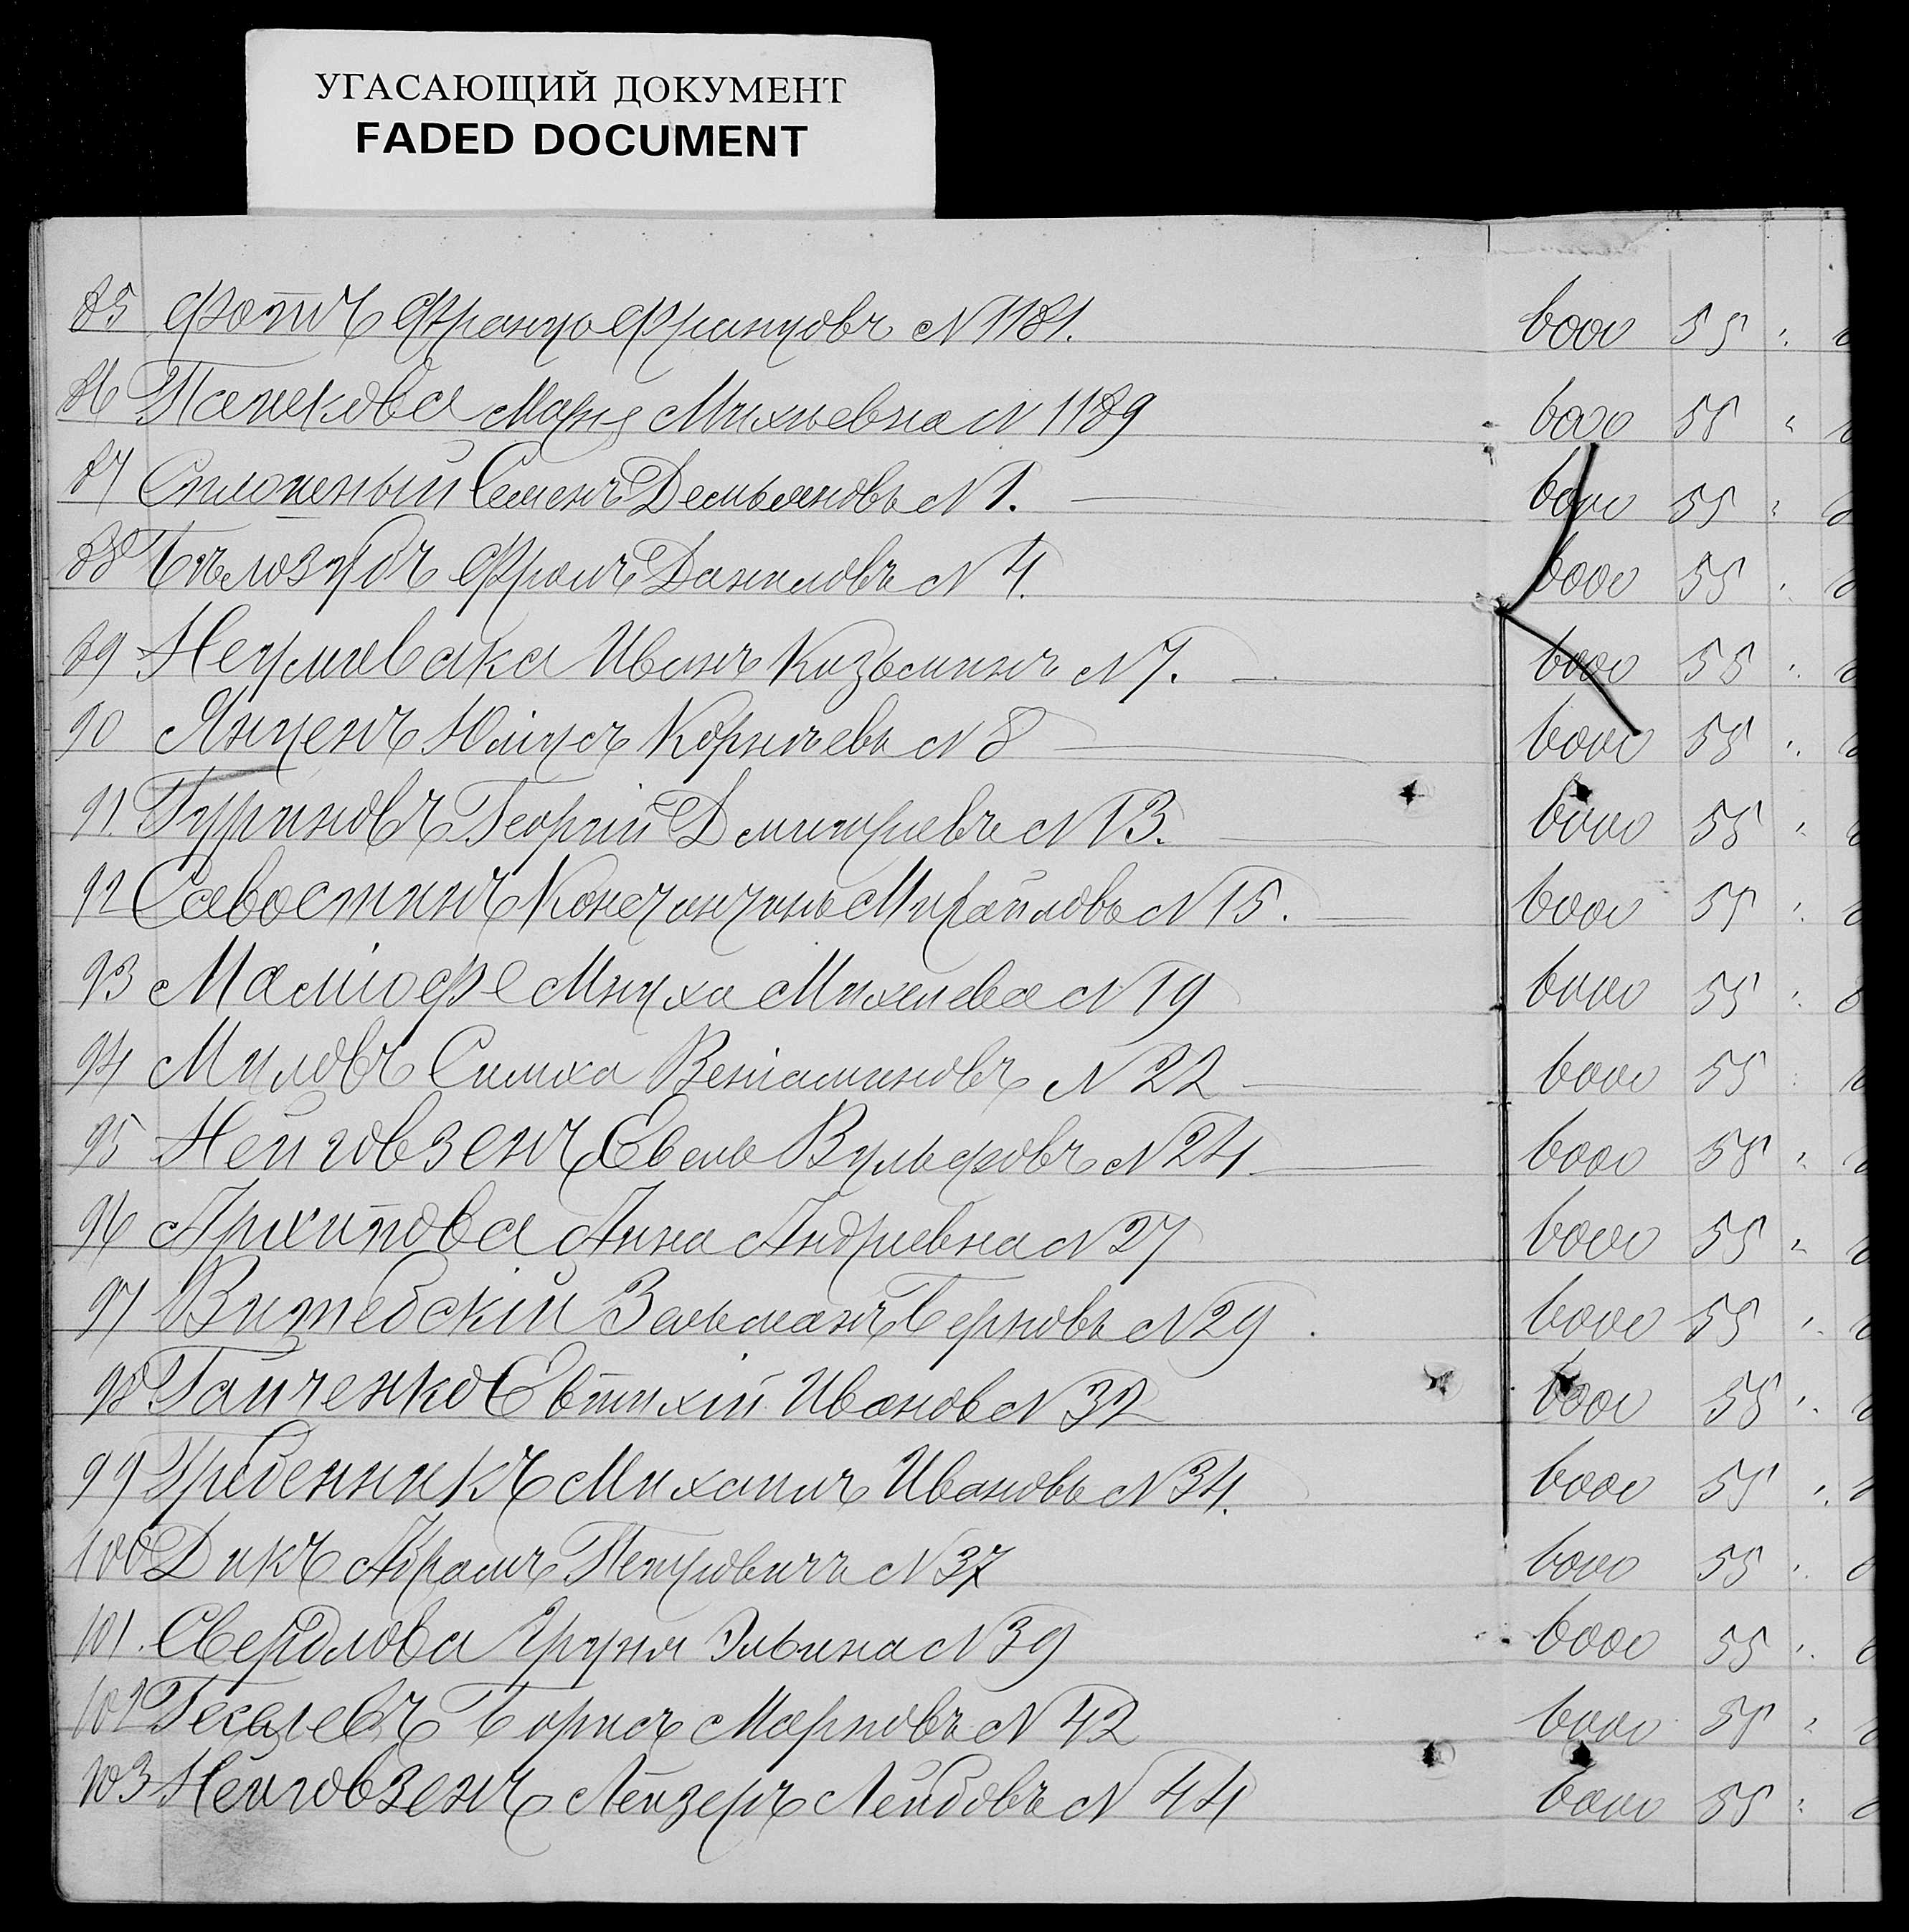 УГАСАЮЩИЙ ДОКУМЕНТ
FADED DOCUMENT
85 Фотъ Францъ Францовъ № 1181. 6000 55
86 Панкова Марія Михневна № 1189 6000 55
87 Сплошный Семенъ Демьяновъ № 1. 6000 55
88 Бѣлозубъ Фролъ Даниловъ № 4. 6000 55
89 Неумывака Иванъ Козьминъ № 7. 6000 55
90 Янценъ Юліусъ Корнѣевъ № 8 6000 55
91. Гуриновъ Георгій Дмитріевъ № 13. 6000 55
92 Савостинъ Константинъ Михайловъ № 15. 6000 55
93 Маліофе Мнуха Михелева № 19 6000 55
94 Миловъ Симха Веніаминовъ № 22 6000 55
95 Нейговзенъ Евель Вульфовъ № 24 6000 55
96 Архипова Анна Андріевна № 27 6000 55
97 Витебскій Зальманъ Берковъ № 29. 6000 55
98 Гайченко Евтихій Иванов № 32 6000 55
99 Гребенникъ Михаилъ Ивановъ № 34. 6000 55
100 Дикъ Абрамъ Петровичъ № 37 6000 55
101. Свердлова Груня Эльина № 39 6000 55
102 Гесалевъ Борисъ Марковъ № 42 6000 55
103 Нейговзенъ Лейзеръ Лейбовъ № 44 6000 55